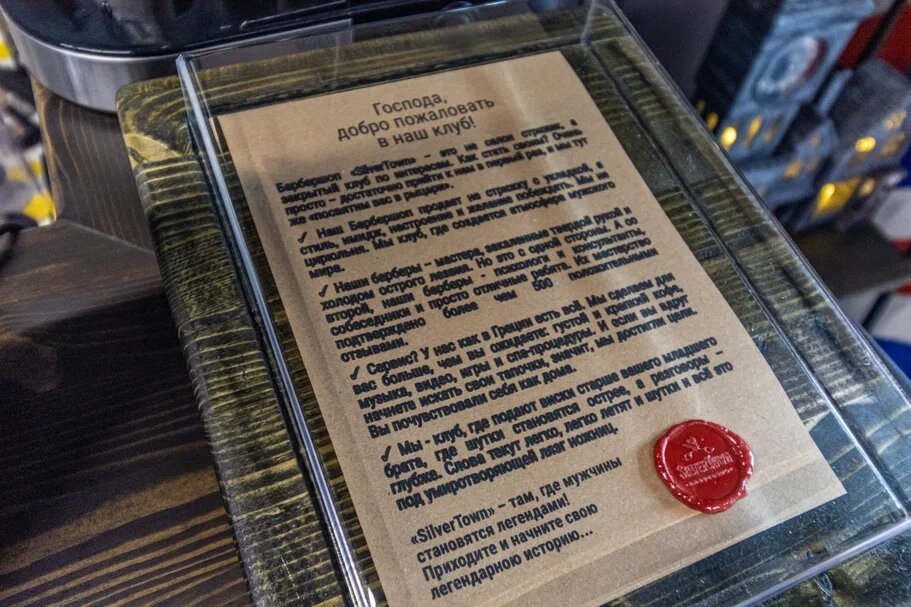 Господа,
добро пожаловать
в наш клуб!
Барбершоп «SilverTown» – это не салон стрижек, а
закрытый клуб по интересам. Как стать своим? Очень
просто – достаточно прийти к нам в первый раз, и мы тут
же «посвятим вас в рыцари».
✓ Наш Барбершоп продает не стрижку с укладкой, а
стиль, имидж, настроение и желание побеждать. Мы не
цирюльня. Мы клуб, где создается атмосфера мужского
мира.
✓ Наши барберы – мастера, закаленные твердой рукой и
холодом острого лезвия. Но это с одной стороны. А со
второй, наши барберы - психологи и консультанты,
собеседники и просто отличные ребята. Их мастерство
подтверждено более чем 500 положительными
отзывами.
✓ Сервис? У нас как в Греции есть всё! Мы сделаем для
вас больше, чем вы ожидаете: густой и крепкий кофе,
музыка, видео, игры и спа-процедуры. И если вы вдруг
начнете искать свои тапочки, значит, мы достигли цели.
Вы почувствовали себя как дома.
✓ Мы - клуб, где подают виски старше вашего младшего
брата, где шутки становятся острее, а разговоры –
глубже. Слова текут легко, легко летят и шутки и всё это
под умиротворяющей лязг ножниц.
«SilverTown» – там, где мужчины
становятся легендами!
Приходите и начните свою
легендарною историю...
SilverTown